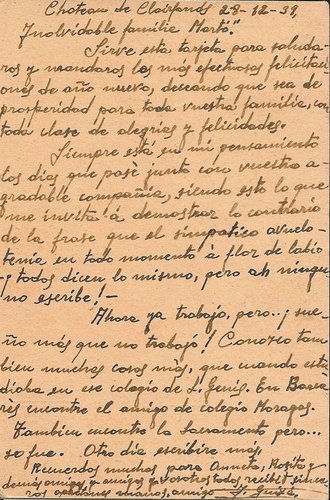 Chateau de Clairfonds 28-12-39,
Inolvidable familia Martó."
Sirve esta tarjeta para saluda-
ros y mandaros las más efectuosas felicitaci
ones de año nuevo, deseando que sea de
prosperidad para toda vuestra familia, con
toda clase de alegrias y felicidades.
Siempre está en mi pensamiento
los dias que pasé junto con vuestra a-
gradable compañia, siendo esto lo que
me invita á demostrar lo contrario
de la frase que el simpático avuelo
tenia en todo momento á flor de labio
¡todos dicen lo mismo, pero ah ningu
no escribe!-
Ahora ya trabajo, pero..¡sue-
ño más que no trabajo! Conozco tam
bien muchas cosas más, que cuando estu
diaba en ese colegio de S. Genís. En
encontre el amigo de colegio Moragas.
Tambien encontre la Sacramento pero...
se fue. Otro dia escribire más
Recuerdos muchos para Anneta, Rosita y
demás amigos y amigas y vosotros todos recibir since
ros manos, amigo